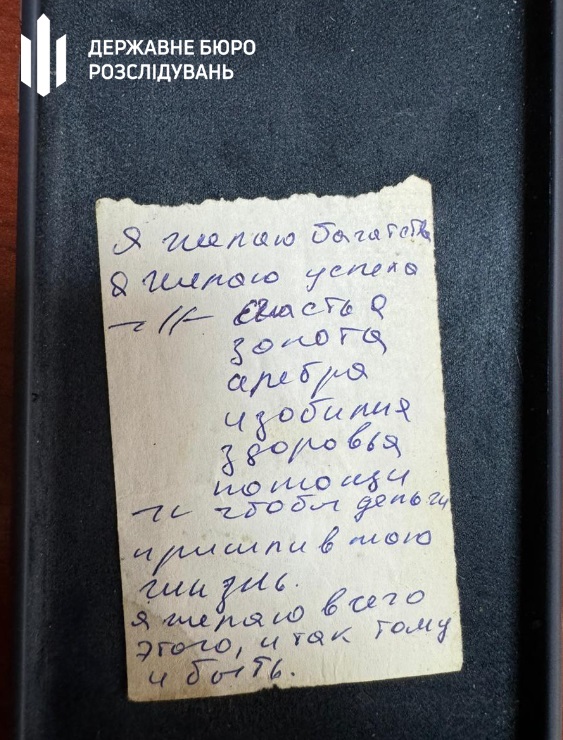 ДЕРЖАВНЕ БЮРО
РОЗСЛІДУВАНЬ
Я желаю багатства
Я желаю успеха
–//– счастья
золота
сребра
изобилия
здоровья
помощи
–"– чтобы деньги
пришли в мою
жизнь.
Я желаю всего
этого, и так тому
и быть.